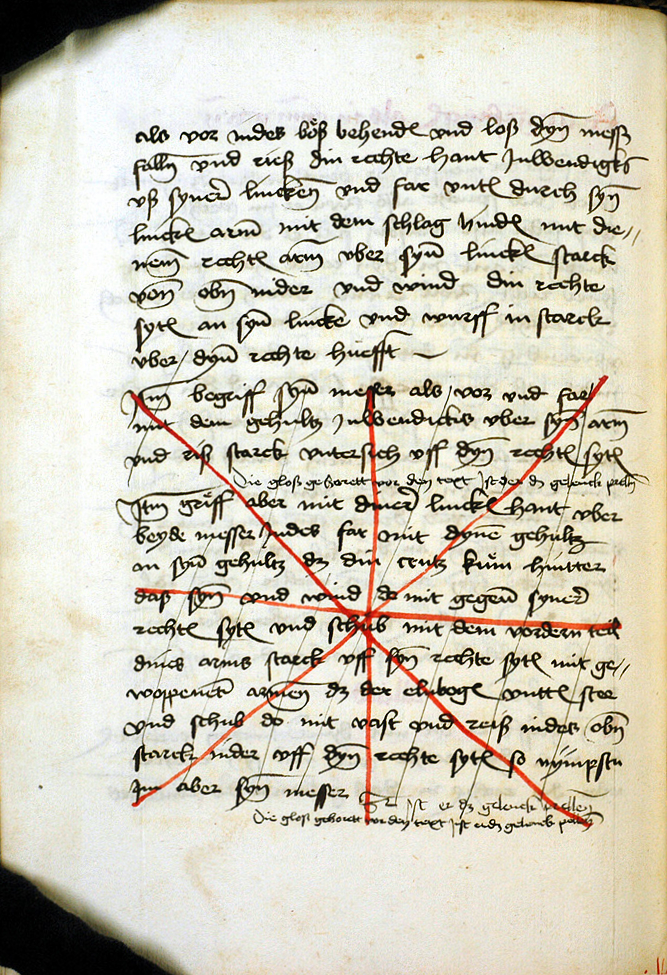 als vor indes böß behendt vnd loß dyn messß
falln vnd rieß din rechte hant Inwendigks
vß syner lincken vnd far vntt durch syn
linckt arm mit dem schlag hindt mit die//
nem rechtt arm vber syn linckt starck
von obn nider vnd wind din rechte
sytt an syn lincke vnd wurff in starck
vber / dyn rechte huefft
Itm begriff syn messer als / vor vnd far
mit dem gehultz Inwendickts vber syn arm
vnd riß starck vntersich vff dyn rechtt sytt
Die gloß gehorett vor den text Ist der dz gelenck prellen
Itm gräff aber mit diner linckt hant vber
beyde messer Indes far mit dyne gehultz
an syn gehultz dz din crutz kum hintter
das syn vnd wind do mit gegen syner
rechtt sytt vnd schub mit dem vordern teil
dines arms starck vff syn rechte sytt mit ge//
woppentn armen dz der elnbogt vnttn stee
vnd schub do mit vast vnd reiß indes obn
starck nider vff dyn rechte sytt so nympstu
Im aber syn messer
ist er dz gelenck prellen
Die gloß gehorett vor den text Ist er dz gelenck prellen